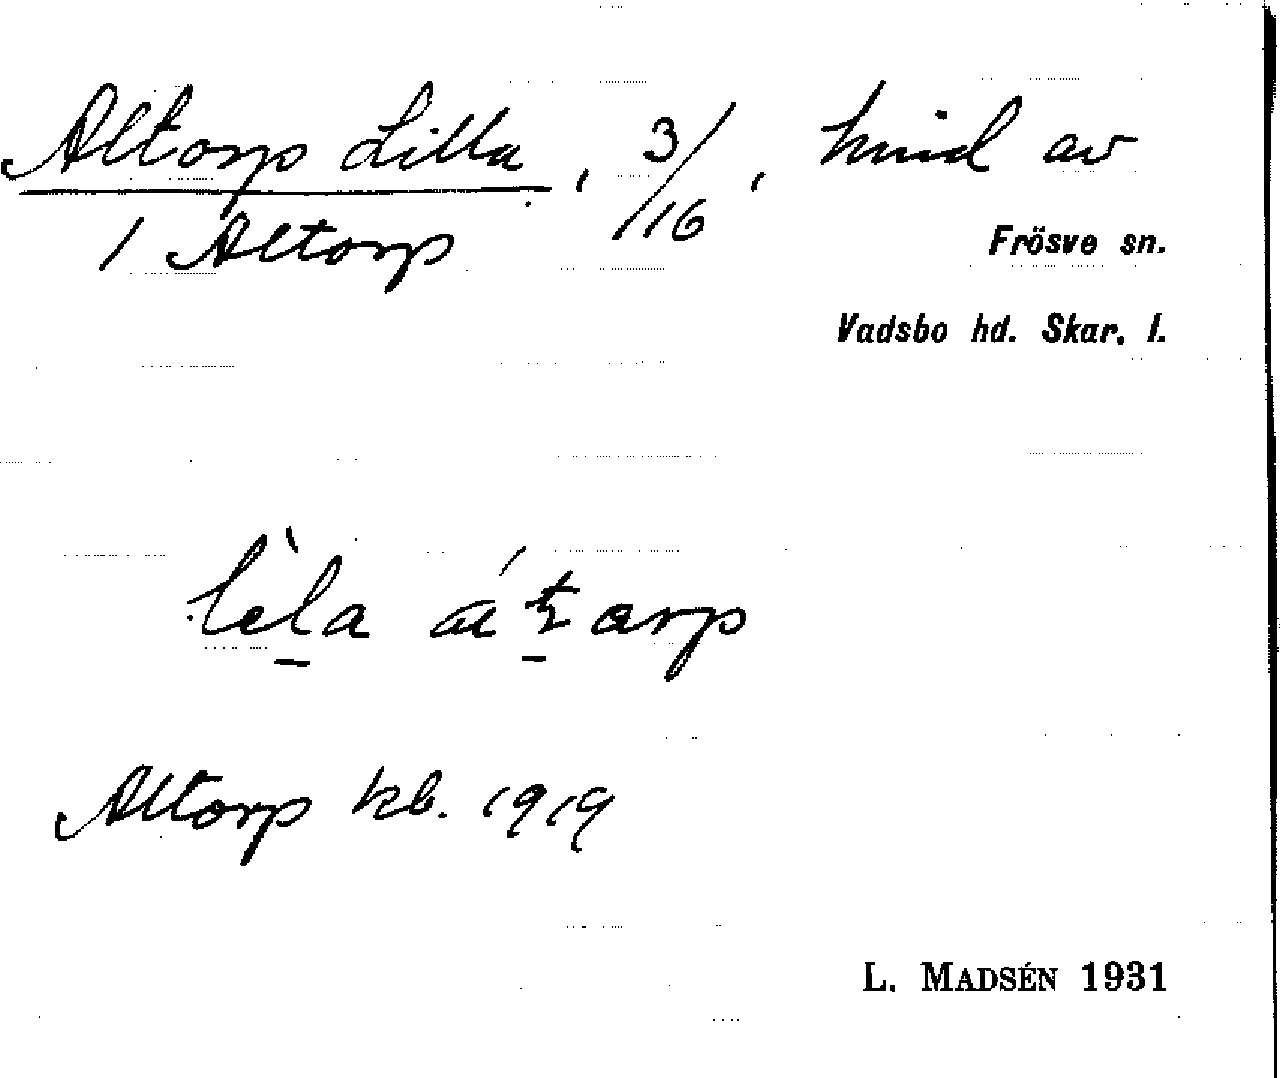 Altorp Lilla, 3/16, hmid av
1 Altorp
Frösve sn.
Vadsbo hd. Skar. l.
lèla átarp
Altorp kb. 1919
L. MADSÉN 1931